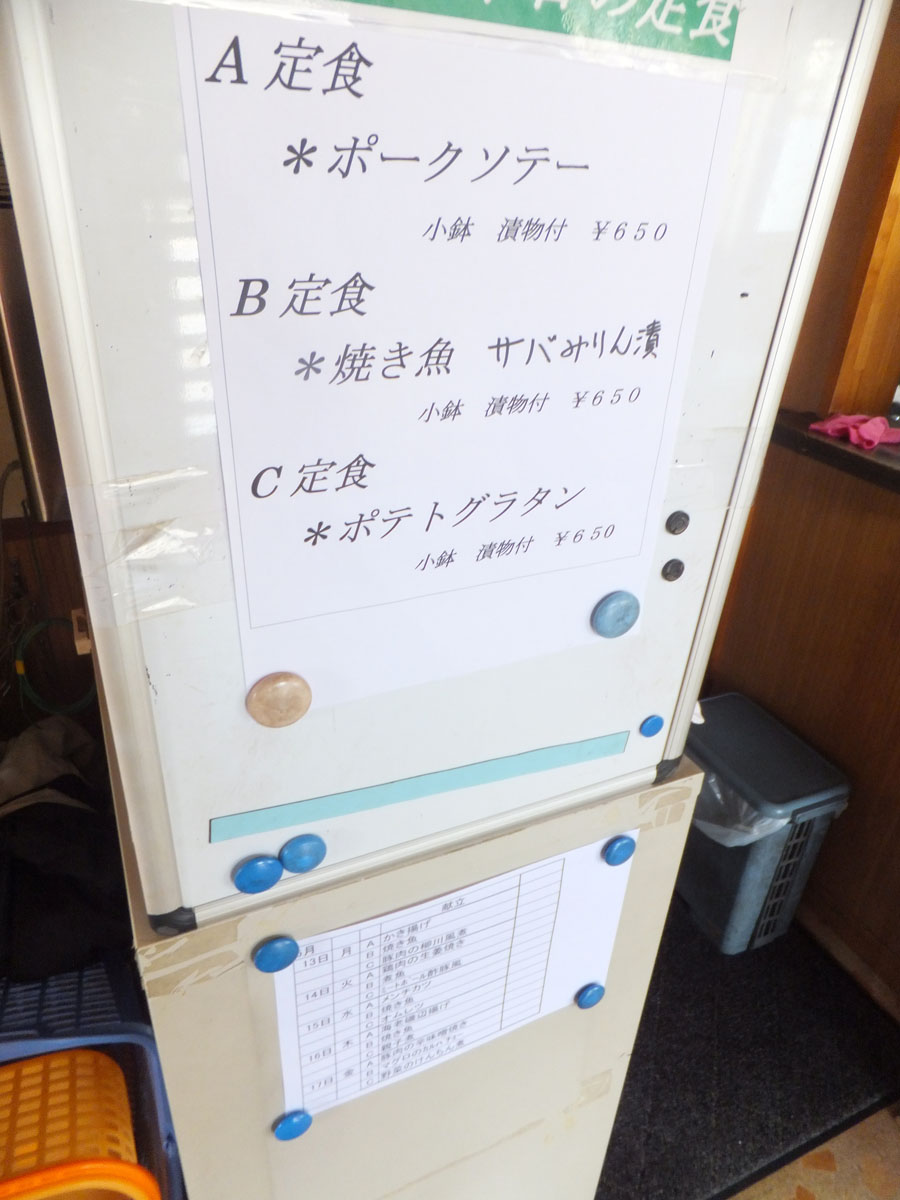 の定食
A 定食
＊ポークソテー
小鉢 漬物付 ￥６５０
B 定食
＊焼き魚 サバみりん漬
小鉢 漬物付 ￥６５０
C 定食
＊ポテトグラタン
小鉢 漬物付 ￥６５０
月 献立
13日 月 A かき揚げ
B 焼き魚
C 豚肉の柳川風煮
14日 火 A 鶏肉の生姜焼き
B 煮魚
C ミートボール酢豚風
15日 水 A メンチカツ
B 焼き魚
C オムレツ
16日 木 A 海老磯辺揚げ
B 焼き魚
C 親子煮
17日 金 A 豚肉の辛味噌焼き
B マグロのカルパッチョ
C 野菜のけんちん煮